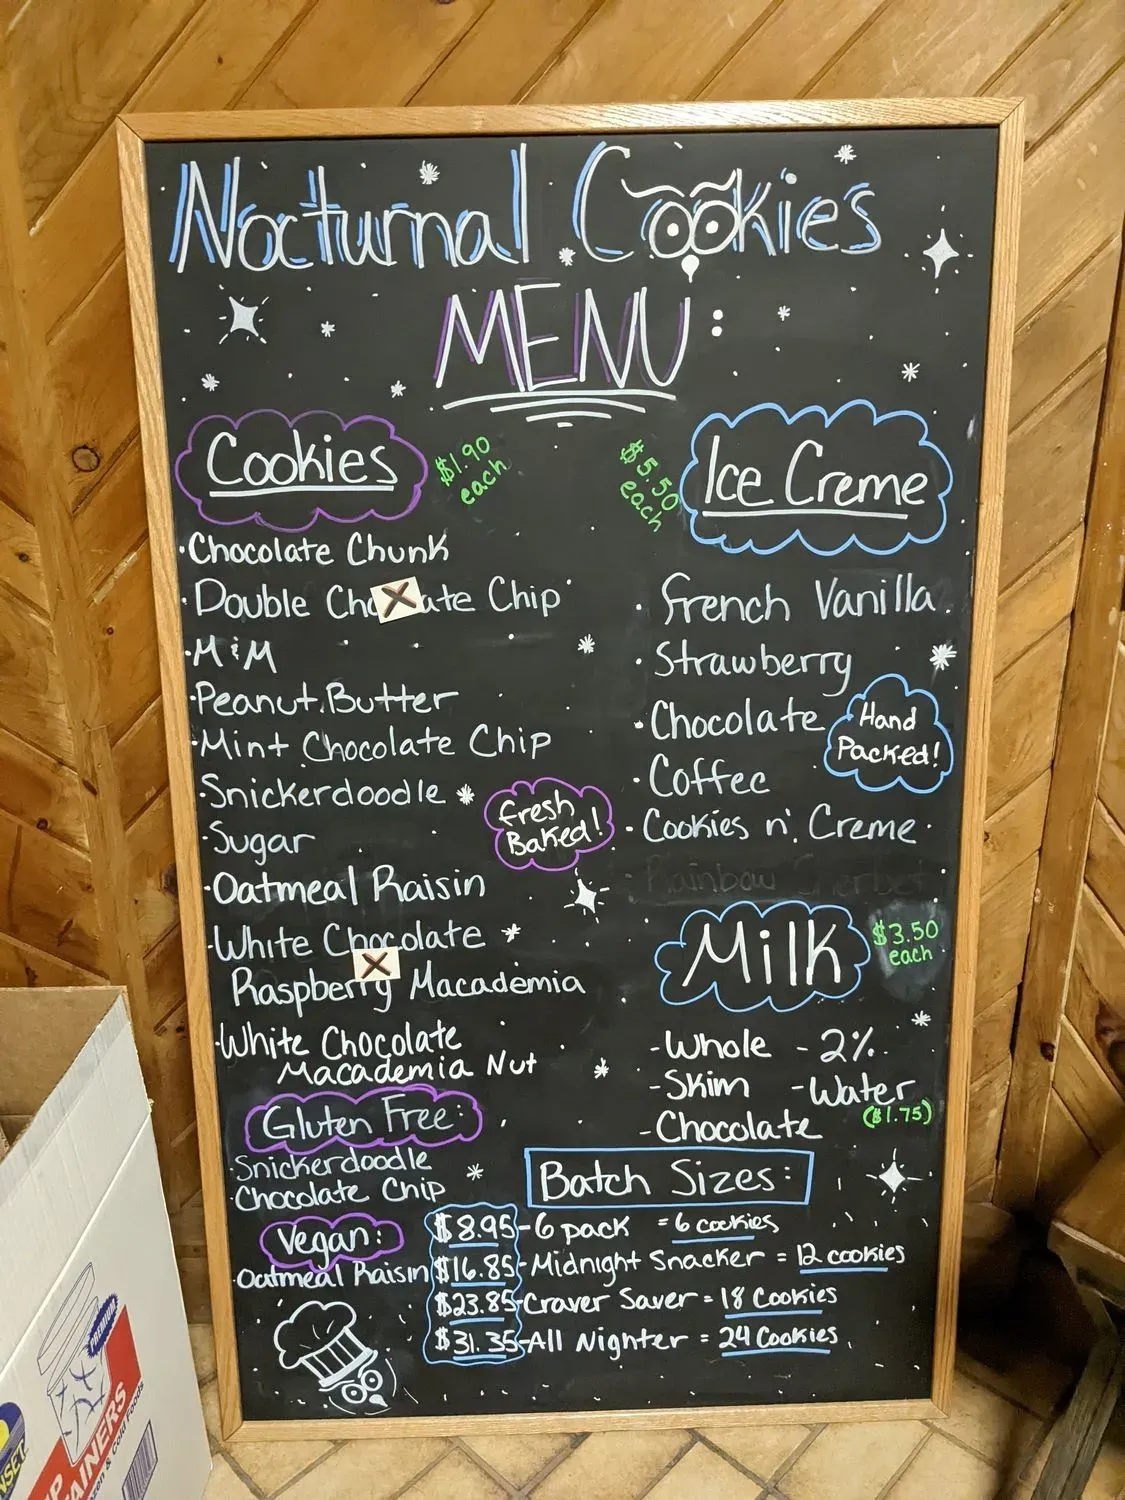 Nocturnal Cookies
MENU:
Cookies
$1.90
each
·Chocolate Chunk
·Double Cho ate Chip
·M&M
·Peanut Butter
·Mint Chocolate Chip
·Snickerdoodle
·Sugar
·Oatmeal Raisin
·White Chocolate
Raspberry Macademia
·White Chocolate
Macademia Nut
Fresh
Baked!
Gluten Free:
·Snickerdoodle
·Chocolate Chip
Vegan:
·Oatmeal Raisin
$5.50
each
Ice Creme
· French Vanilla
· Strawberry
· Chocolate
· Coffee
· Cookies n' Creme
· Rainbow Sherbet
Hand
Packed!
Milk
$3.50
each
-Whole -2%
-Skim -Water
($1.75)
-Chocolate
Batch Sizes:
$8.95-6 pack = 6 cookies
$16.85-Midnight Snacker = 12 cookies
$23.85-Craver Saver = 18 Cookies
$31.35-All Nighter = 24 Cookies
PREMIUM